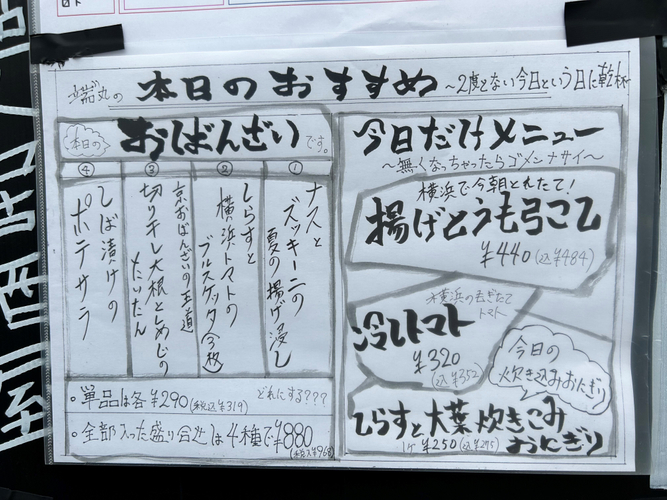 本日のおすすめ ～2度とない今日という日に乾杯～
本日の おばんざい です。
①
ナスと
ズッキーニの
夏の揚げ浸し
②
しらすと
横浜トマトの
ブルスケッタ(2枚)
③
京おばんざいの王道
切り干し大根としめじの
たいたん
④
しば漬けの
ポテサラ
・単品は各¥290(税込¥319) どれにする???
・全部入った盛り合せは4種で¥880
(税込¥968)
今日だけメニュー
～無くなっちゃったらゴメンナサイ～
横浜で今朝とれたて!
揚げとうもろこし
¥440(込¥484)
横浜のもぎたて
トマト
冷しトマト
¥320
(込¥352)
今日の
炊き込みおにぎり
しらすと大葉炊きこみ
おにぎり
1ケ ¥250(込¥275)